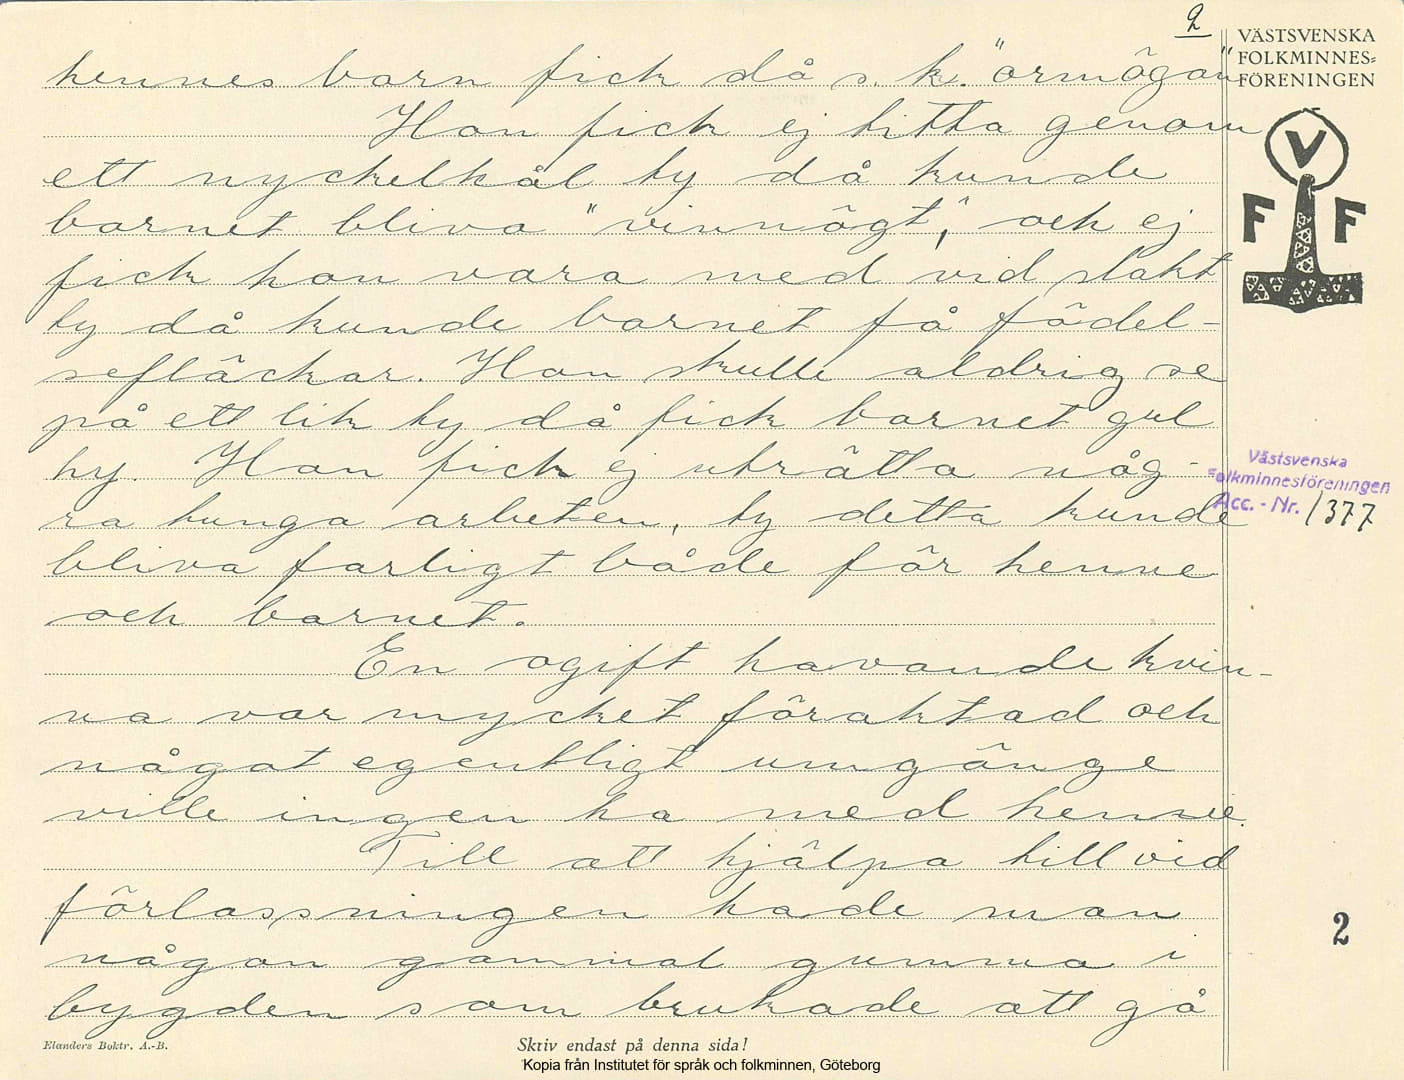 2
VÄSTSVENSKA
FOLKMINNES-
FÖRENINGEN
V
F F
hennes barn fick då s. k. "ormögon"
Hon fick ej titta genom
ett nyckelhål ty då kunde
barnet bliva "vinnögt", och ej
fick hon vara med vid slakt
ty då kunde barnet få födel-
sefläckar. Hon skulle aldrig se
på ett lik ty då fick barnet gul
hy. Hon fick ej uträtta någ-
ra tunga arbeten, ty detta kunde
bliva farligt både för henne
och barnet.
En ogift havande kvin-
na var mycket föraktad och
något egentligt umgänge
ville ingen ha med henne.
Till att hjälpa till vid
förlossningen hade man
någon gammal gumma i
bygden som brukade att gå
Västsvenska
Folkminnesföreningen
Acc. - Nr. 1377
2
Elanders Boktr. A.-B.
Skriv endast på denna sida!
Kopia från Institutet för språk och folkminnen, Göteborg